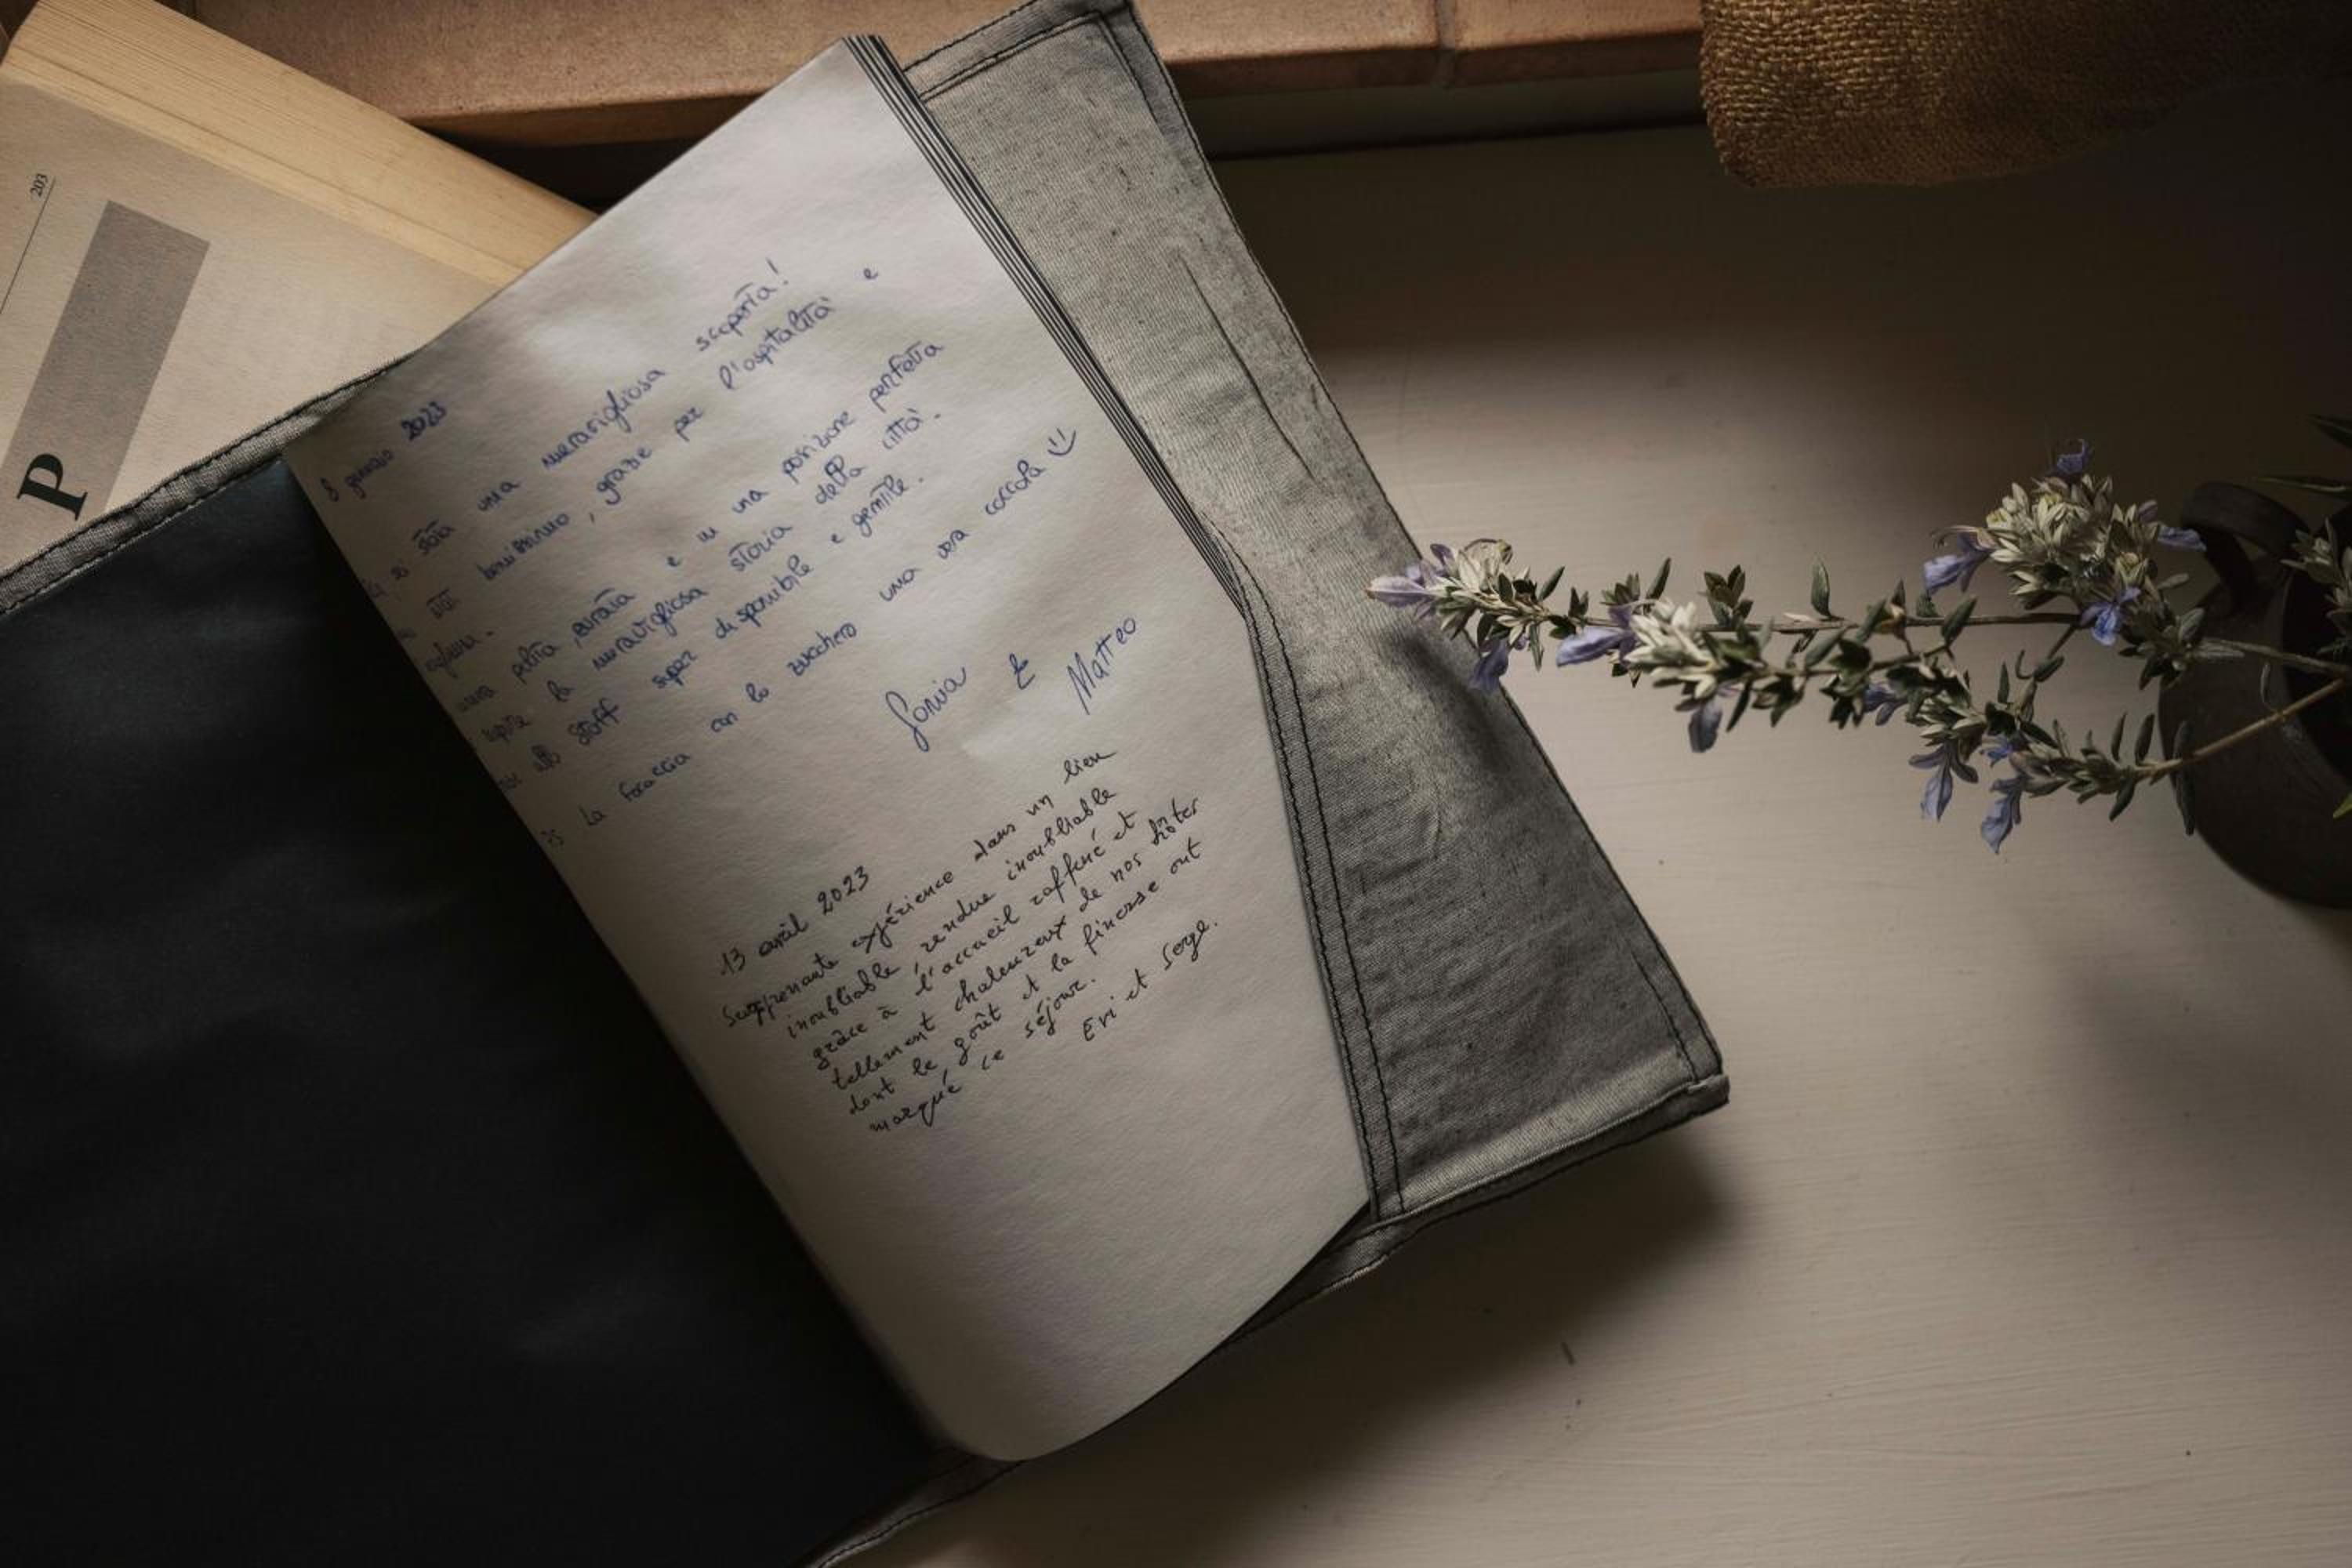 203
P
8 2023
è stata una meravigliosa scoperta!
stati benissimo, grazie per l'ospitalità e
pulita, curata e in una posizione perfetta
la meravigliosa storia della città.
allo staff super disponibile e gentile.
PS La focaccia con lo zucchero una vera coccola
Sonia & Matteo
13 avril 2023
Surprenante expérience dans un lieu
inoubliable, rendue inoubliable
grâce à l'accueil raffiné et
tellement chaleureux de nos hôtes
dont le goût et la finesse ont
marqué ce séjour.
Evi et Serge.